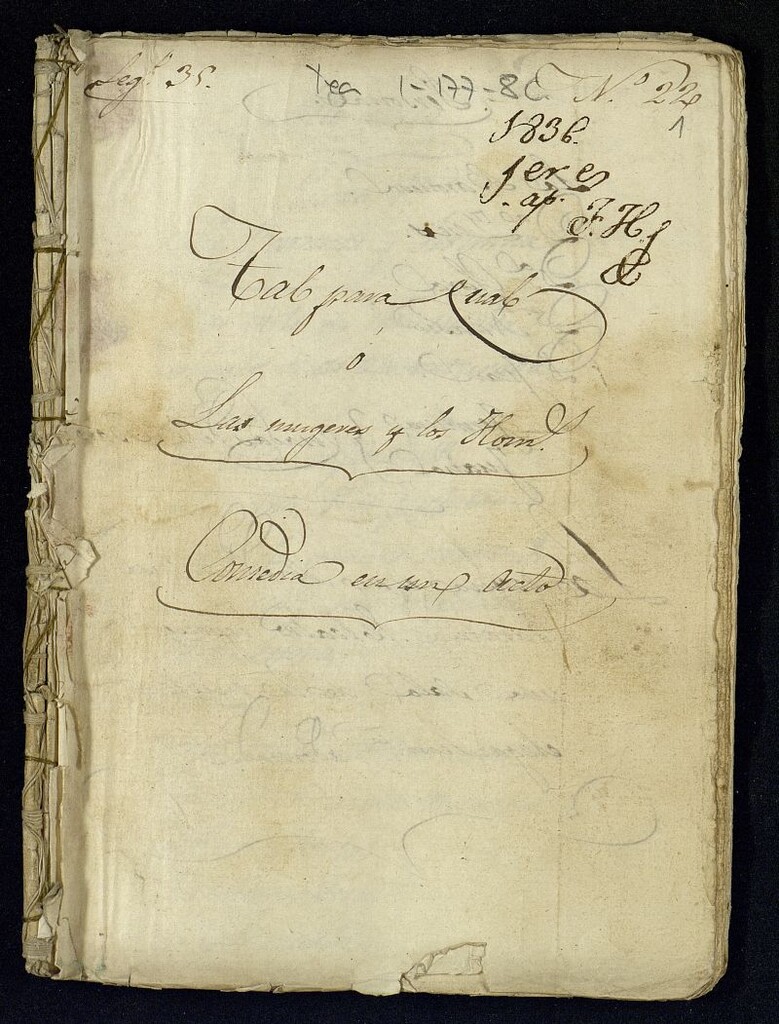 Leg.º 35.
Tea 1-177-8C
N.º 22
1
1836.
1er es
ap.
F. H.
Tal para qual
ó
Las mugeres y los Hom.s
Comedia en un acto